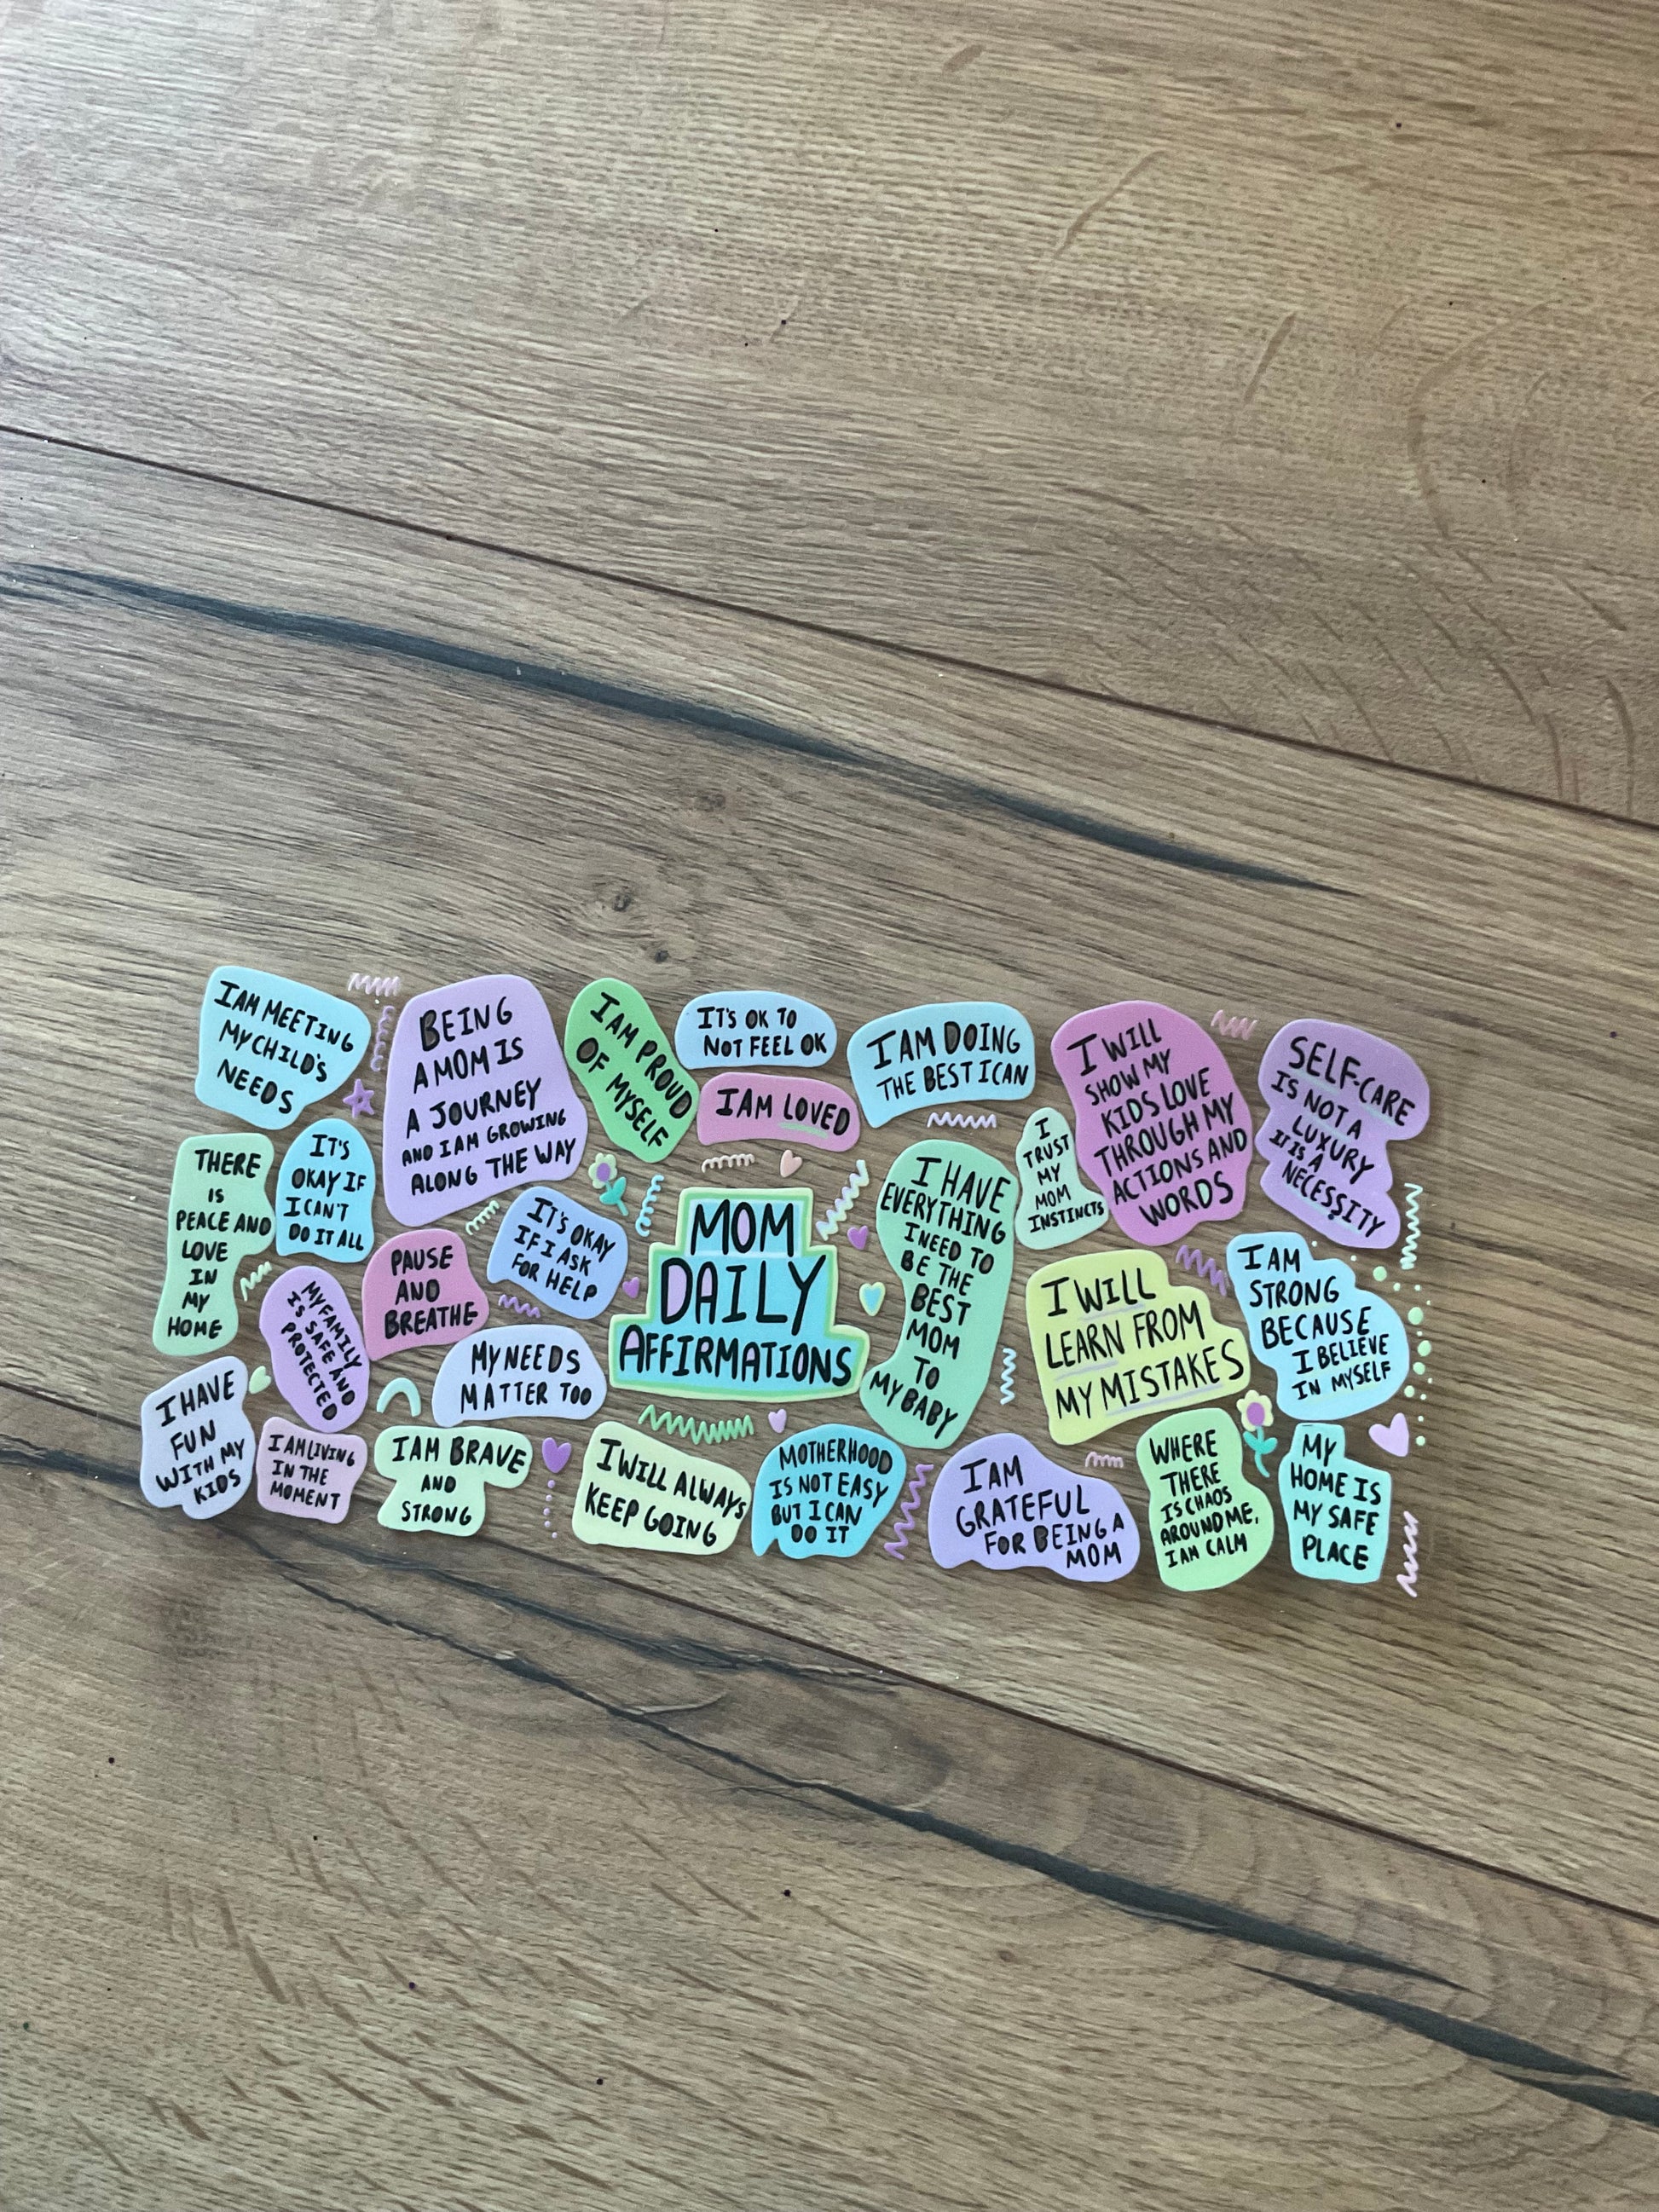 I AM MEETING
MY CHILD'S
NEEDS
BEING
A MOM IS
A JOURNEY
AND I AM GROWING
ALONG THE WAY
I AM PROUD
OF MYSELF
IT'S OK TO
NOT FEEL OK
I AM LOVED
I AM DOING
THE BEST I CAN
I WILL
SHOW MY
KIDS LOVE
THROUGH MY
ACTIONS AND
WORDS
SELF-CARE
IS NOT A
LUXURY
IT IS A
NECESSITY
THERE
IS
PEACE AND
LOVE
IN
MY
HOME
IT'S
OKAY IF
I CAN'T
DO IT ALL
I
TRUST
MY
MOM
INSTINCTS
PAUSE
AND
BREATHE
IT'S OKAY
IF I ASK
FOR HELP
MOM
DAILY
AFFIRMATIONS
I HAVE
EVERYTHING
I NEED TO
BE THE
BEST
MOM
TO
MY BABY
I WILL
LEARN FROM
MY MISTAKES
I AM
STRONG
BECAUSE
I BELIEVE
IN MYSELF
MY FAMILY
IS SAFE AND
PROTECTED
MY NEEDS
MATTER TOO
I HAVE
FUN
WITH MY
KIDS
I AM LIVING
IN THE
MOMENT
I AM BRAVE
AND
STRONG
I WILL ALWAYS
KEEP GOING
MOTHERHOOD
IS NOT EASY
BUT I CAN
DO IT
I AM
GRATEFUL
FOR BEING A
MOM
WHERE
THERE
IS CHAOS
AROUND ME,
I AM CALM
MY
HOME IS
MY SAFE
PLACE